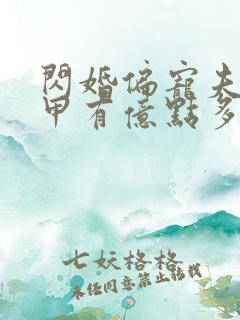 閃婚偏寵夫
甲有億點多
七妖格格
未任同意禁止转载